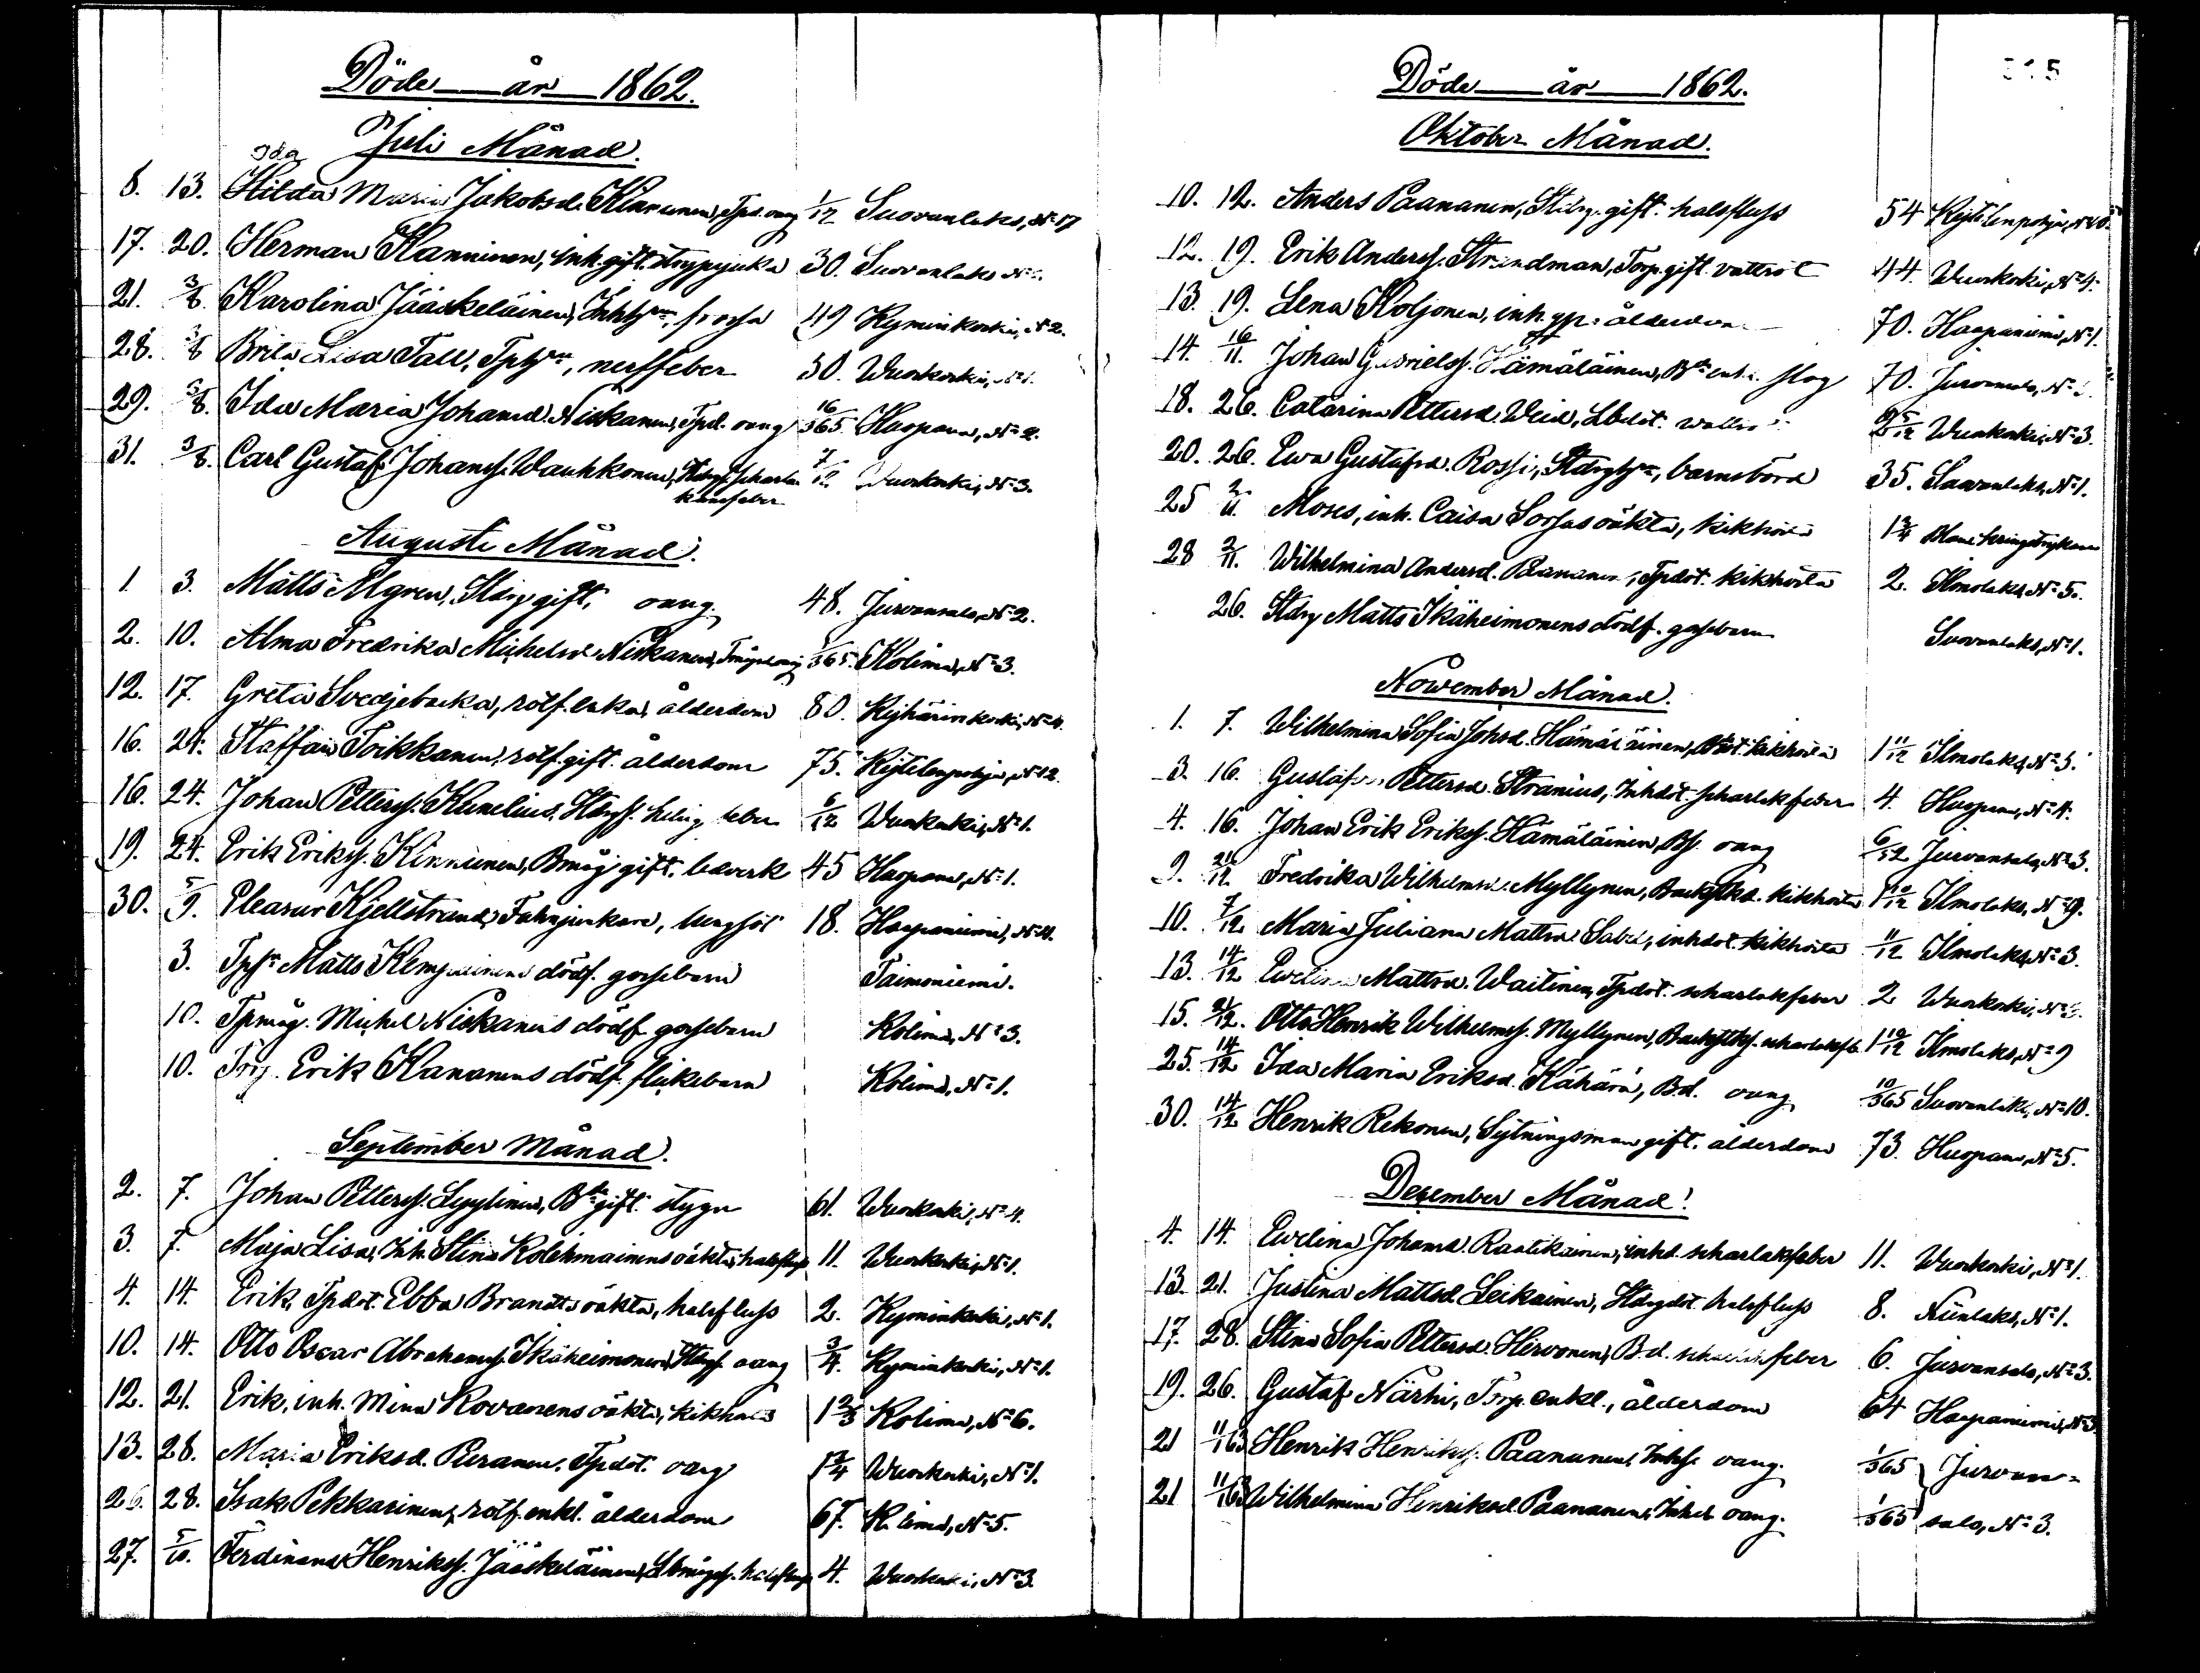 Döde år 1862.
Juli Månad.
Ida
8. 13. Hilda Maria Jakobsd. Kinnunen, Tpd. oang 1/12 Suovanlaks, No 17
17. 20. Herman Kanninen, inh. gift. strypsjuka 30. Suovanlaks No
21. 3/8 Karolina Jääskeläinen, Inhhru, frossa 49 Kyminkoski, No 2.
28. 3/8 Brita Lisa Tall, Tphru, nerffeber 30. Wuoskoski, No 1.
29. 3/8. Ida Maria Johansd. Niskanen, Tpd. oang 16/365 Huopana, No 2.
31. 3/8. Carl Gustaf Johanss. Wauhkonen, Stdrgs. scharla- 7/12 Wuoskoski, No 3.
kansfeber
Augusti Månad.
1. 3. Matts Elgren, Stdrg gift, oang. 48. Jurvansalo, No 2.
2. 10. Alma Fredrika Michelsd. Niskanen, oang 1/365. Kolima, No 3.
12. 17. Greta Svedjebacka, rotf. enka, ålderdom 80. Kejhärinkoski, No 4.
16. 24. Staffan Toikkanen, rotf. gift. ålderdom 75. Kejtilenpohja, No 12.
16. 24. Johan Petterss. Kumelius, Stdrgs. feber 6/12 Wuoskoski, No 1.
19. 24. Erik Erikss. Kinnunen, Bmåg gift. ledverk 45 Huopana, No 1.
30. 5/9. Pleasur Kjellstrand, Fahnjunkare, lungsot 18. Haapaniemi, No 4.
3. Tpsn Matts Kemppainens dödf. gossebarn Taimoniemi.
10. Tpmåg. Michel Niskanens dödf. gossebarn Kolima, No 3.
10. Trp. Erik Kananens dödf. flickebarn Kolima, No 1.
September Månad.
2. 7. Johan Petterss. Lyytinen, Bde gift. stygn 61. Wuoskoski, No 4.
3. 7. Maja Lisa, Inh. Stina Kolehmainens oäkta, halsfluss 11. Wuoskoski, No 1.
4. 14. Erik, Tpdot. Ebba Brandts oäkta, halsfluss 2. Kyminkoski, No 1.
10. 14. Otto Oscar Abrahamss. Ikäheimonen, Stdrgs. oang 3/4. Kyminkoski, No 1.
12. 21. Erik, inh. Mina Kovanens oäkta, kikhosta 1 2/3 Kolima, No 6.
13. 28. Maria Eriksd. Piiranen, Tpdot. oang 1 3/4 Wuoskoski, No 1.
26. 28. Isak Pekkarinen, rotf. enkl. ålderdom 67. Kolima, No 5.
27. 5/10. Ferdinand Henrikss. Jääskeläinen, halsfluss 4. Wuoskoski, No 3.
Döde år 1862.
315
Oktober Månad.
10. 12. Anders Paananen, Stdrg. gift. halsfluss 54 Kejtilenpohja, No
12. 19. Erik Anderss. Strandman, Torp. gift. vattsot 44. Wuoskoski, No 4.
13. 19. Lena Koljonen, inh. ålderdom 70. Haapaniemi, No 1.
14. 16/11. Johan Gabrielss. Hämäläinen, Bde enkl. slag 70. Jurvansalo, No
18. 26. Catarina Pettersd. Weid, vattsot 2 5/12 Wuoskoski, No 3.
20. 26. Ewa Gustafsd. Rossi, Stdrghru, barnsbörd 35. Suovanlaks, No 1.
25 2/11. Moses, inh. Caisa Sorsas oäkta, kikhosta 1 3/4
28 2/11. Wilhelmina Andersd. Paananen, Tpdot. kikhosta 2. Ilmolaks, No 5.
26. Stdrg Matts Ikäheimonens dödf. gossebarn Suovanlaks, No 1.
November Månad.
1. 7. Wilhelmina Sofia Johsd. Hämäläinen, Bdot. kikhosta 1 11/12 Ilmolaks, No 5.
3. 16. Gustafva Pettersd. Stranius, Inhdot. scharlakfeber 4. Huopana, No 4.
4. 16. Johan Erik Erikss. Hämäläinen, Bs. oang 6/52 Jurvansalo, No 3.
9. 21/12. Fredrika Wilhelmsd. Myllynen, kikhosta 1 10/12 Ilmolaks, No 9.
10. 7/12. Maria Juliana Mattsd. inhdot. kikhosta 11/12 Ilmolaks, No 3.
13. 14/12 Evelina Mattsd. Waitinen, Tpdot. scharlakfeber 2 Wuoskoski, No
15. 21/12. Otto Henrik Wilhelmss. Myllynen, scharlaksfb. 1 10/12 Ilmolaks, No 9
25. 14/12 Ida Maria Eriksd. Kähärä, Bd. oang 10/365 Suovanlaks, No 10.
30. 14/12 Henrik Rekonen, Sytningsman gift. ålderdom 73. Huopana, No 5.
Desember Månad!
4. 14. Evelina Johansd. Raatikainen, inhd. scharlakfeber 11. Wuoskoski, No 1.
13. 21. Justina Mattsd. Leikainen, Stdrgdot. halsfluss 8. Niinilaks, No 1.
17. 28. Stina Sofia Pettersd. Hirvonen, B.d. scharlakfeber 6. Jurvansalo, No 3.
19. 26. Gustaf Närhi, Torp. enkl., ålderdom 64 Haapaniemi, No 3
21 11/1 63 Henrik Henrikss. Paananen, Inhs. oang. 1/365 Jurvan-
21 11/1 63 Wilhelmina Henriksd. Paananen, Inhd. oang. 1/365 salo, No 3.